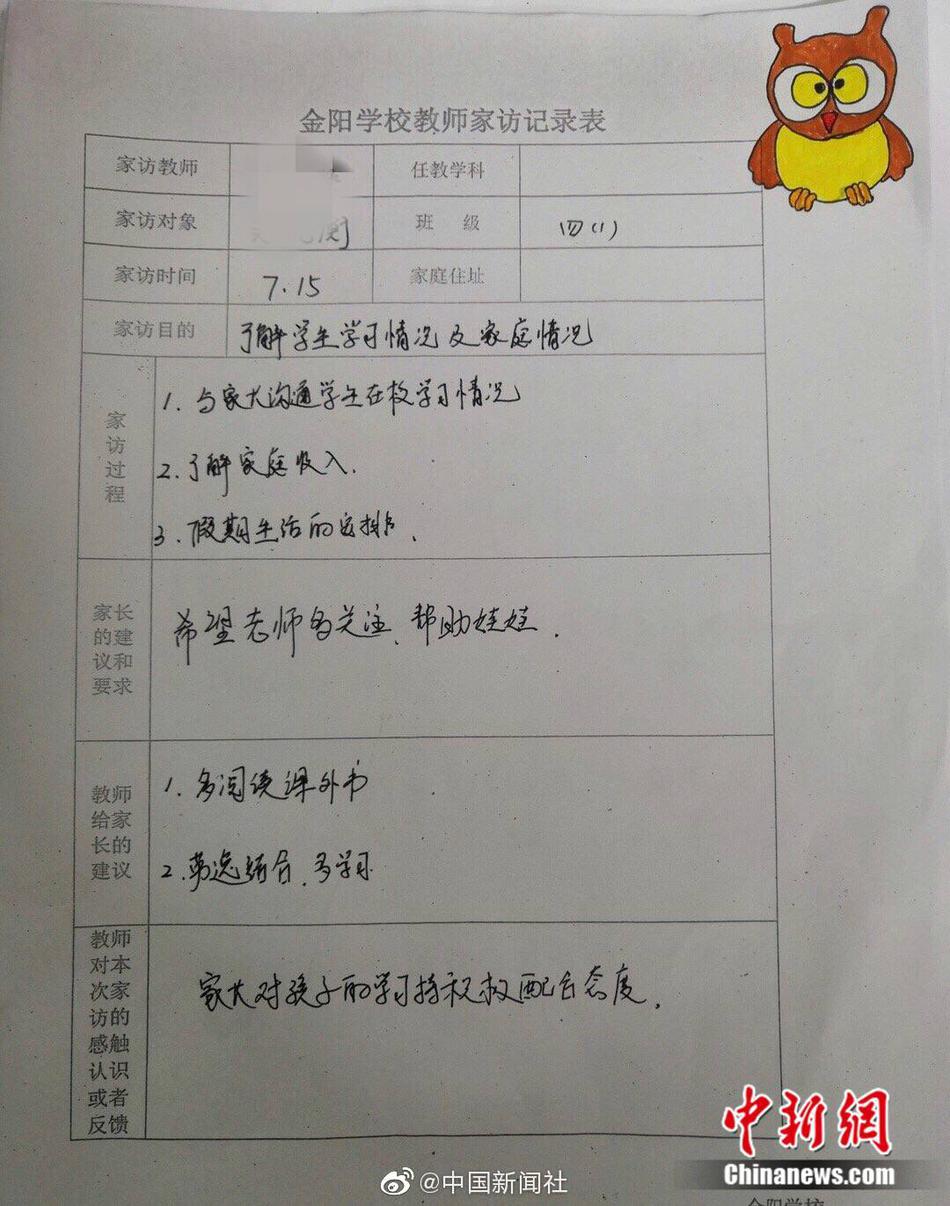 金阳学校教师家访记录表
家访教师 任教学科
家访对象 班 级 四(1)
家访时间 7.15 家庭住址
家访目的 了解学生学习情况及家庭情况
家访过程
1. 与家长沟通学生在校学习情况
2. 了解家庭收入.
3. 假期生活的安排.
家长的建议和要求
希望老师多关注、帮助娃娃.
教师给家长的建议
1. 多阅读课外书
2. 劳逸结合、多学习
教师对本次家访的感触认识或者反馈
家长对孩子的学习持积极配合态度.
中新网
Chinanews.com
@中国新闻社
金阳学校